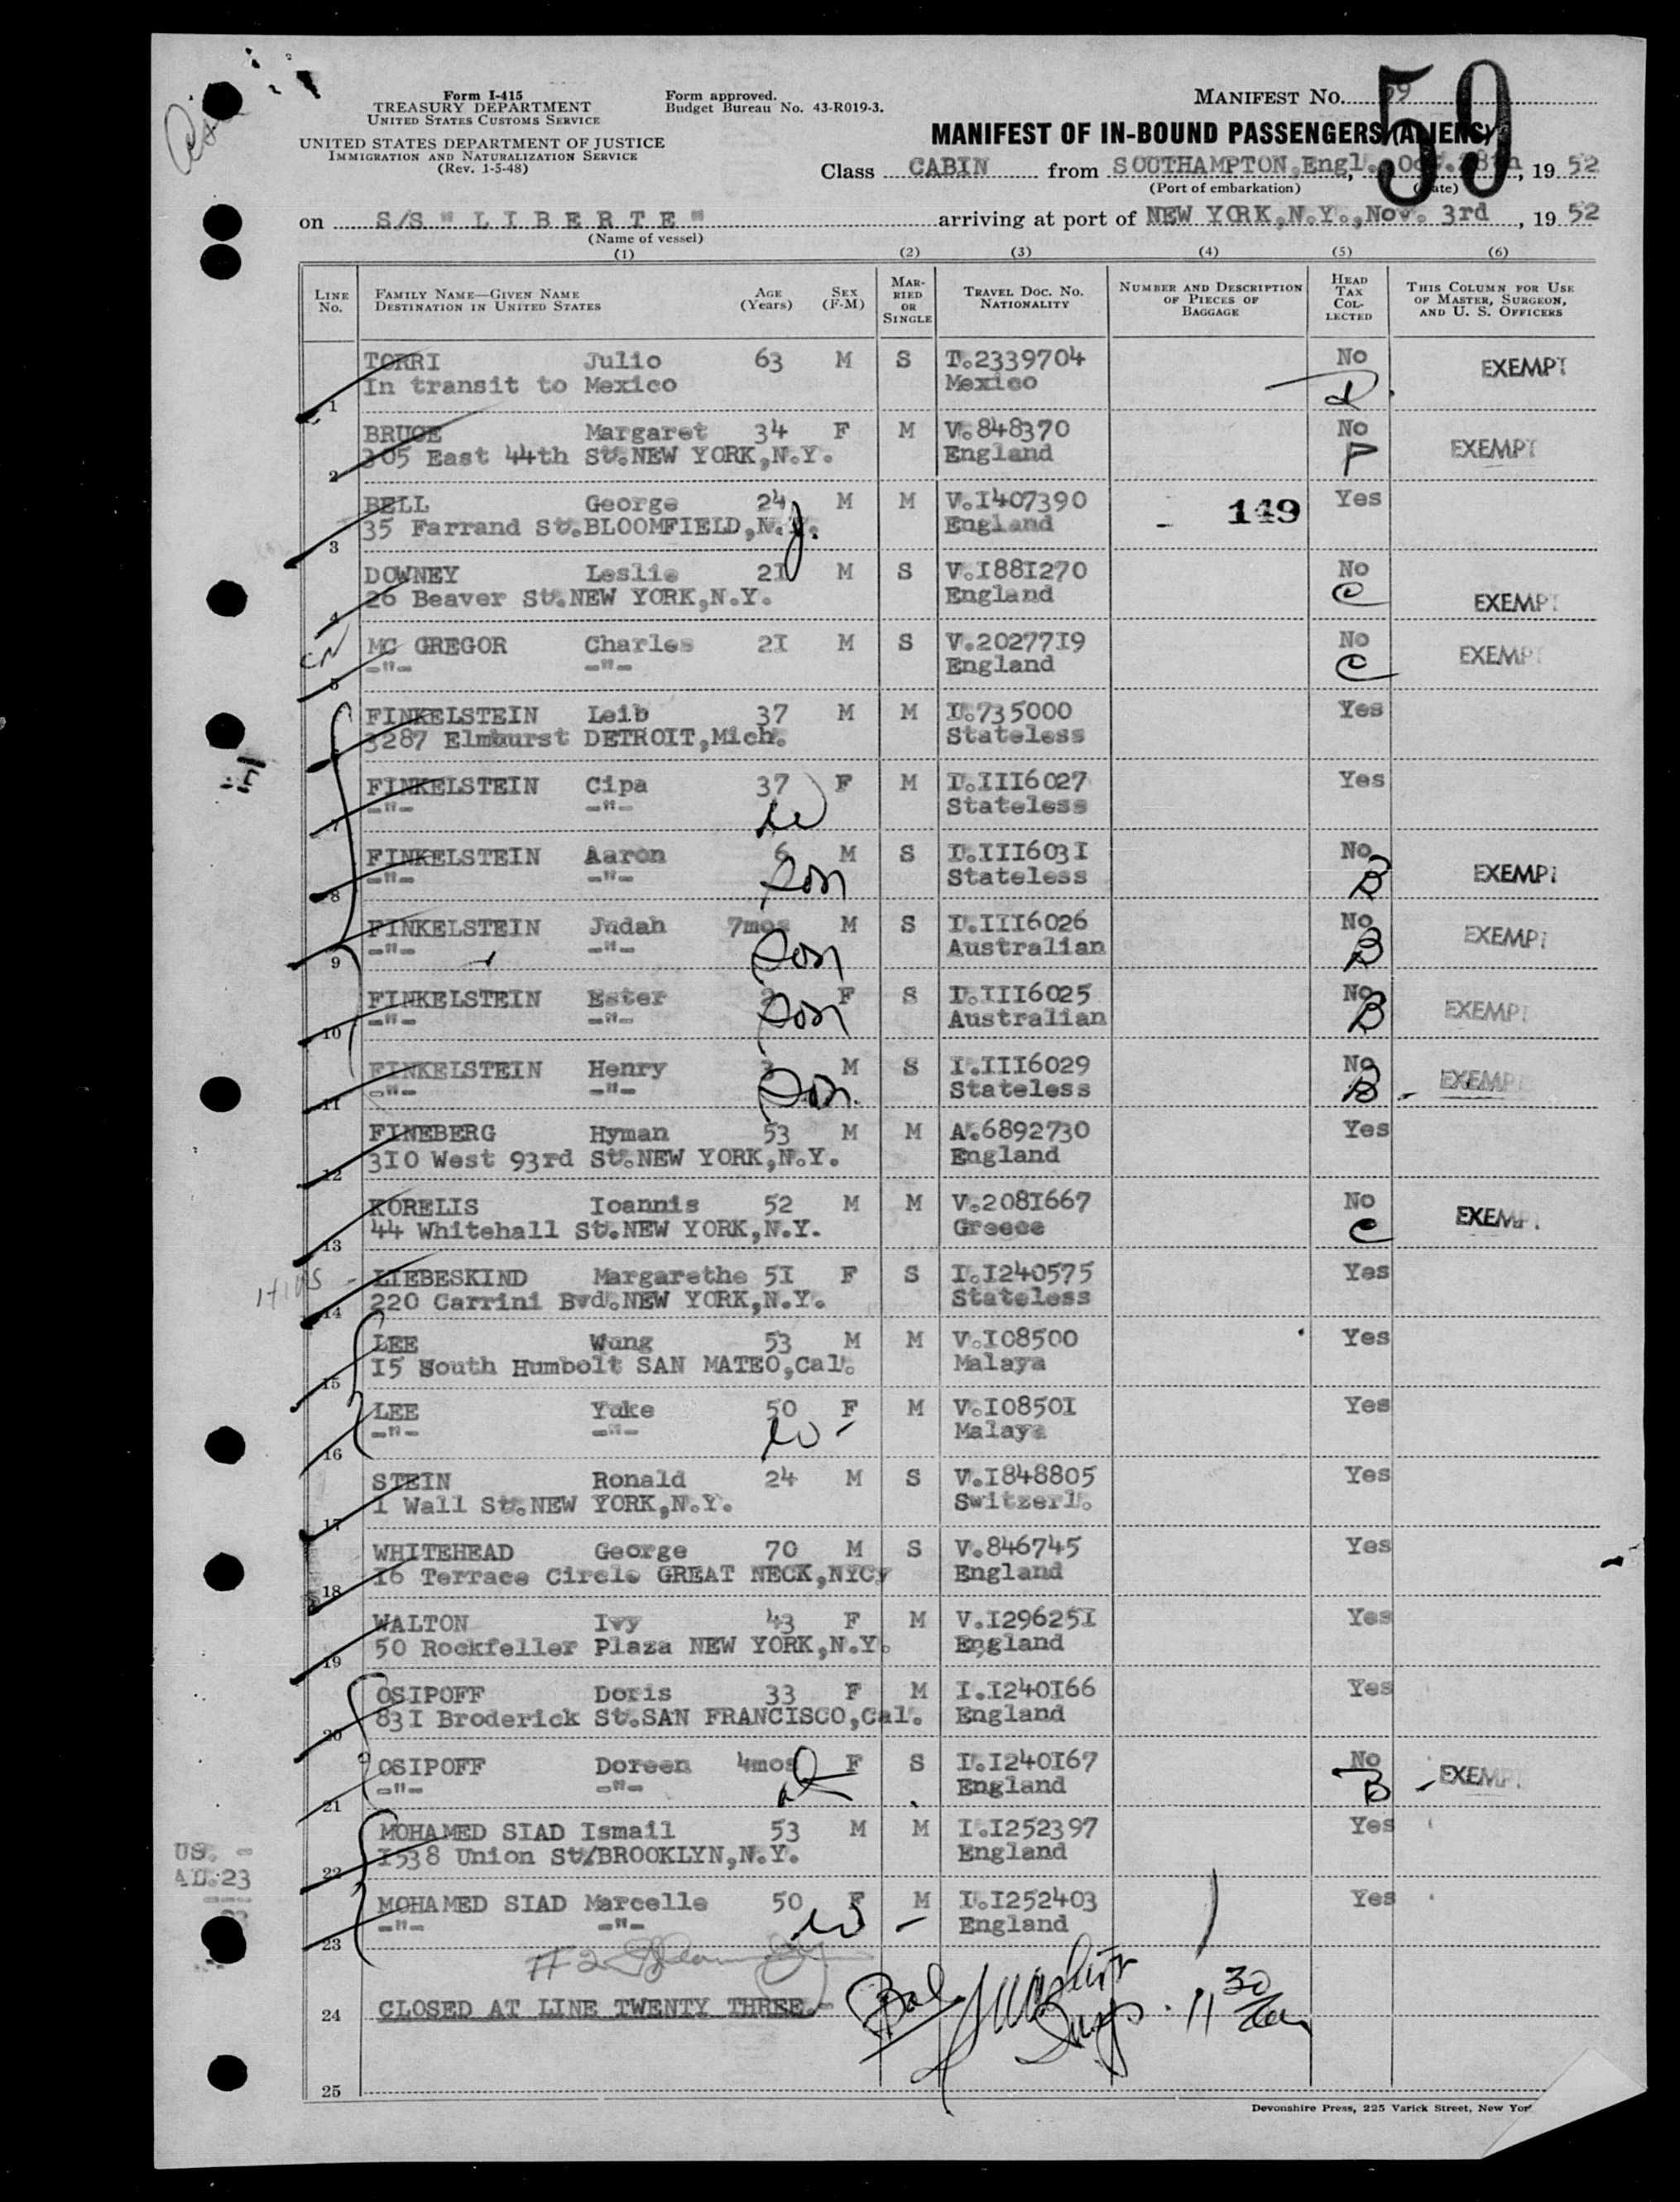 Form I-415
TREASURY DEPARTMENT
UNITED STATES CUSTOMS SERVICE
UNITED STATES DEPARTMENT OF JUSTICE
IMMIGRATION AND NATURALIZATION SERVICE
(Rev. 1-5-48)
Form approved.
Budget Bureau No. 43-R019-3.
MANIFEST NO. 59
59
MANIFEST OF IN-BOUND PASSENGERS (ALIENS)
Class CABIN from SOUTHAMPTON,Engl., Oct.28th, 19 52
(Port of embarkation) (Date)
on S/S " L I B E R T E " arriving at port of NEW YORK,N.Y.,Nov. 3rd, 19 52
(Name of vessel)
(1) (2) (3) (4) (5) (6)
LINE NO. FAMILY NAME—GIVEN NAME DESTINATION IN UNITED STATES AGE (YEARS) SEX (F-M) MARRIED OR SINGLE TRAVEL DOC. NO. NATIONALITY NUMBER AND DESCRIPTION OF PIECES OF BAGGAGE HEAD TAX COLLECTED THIS COLUMN FOR USE OF MASTER, SURGEON, AND U. S. OFFICERS
TORRI Julio 63 M S T.2339704 No EXEMPT
1 In transit to Mexico Mexico
BRUCE Margaret 34 F M V.848370 No EXEMPT
2 305 East 44th St.NEW YORK,N.Y. England P
BELL George 24 M M V.I407390 149 Yes
3 35 Farrand St.BLOOMFIELD,N.J. England
DOWNEY Leslie 2I M S V.I88I270 No
4 26 Beaver St.NEW YORK,N.Y. England C EXEMPT
MC GREGOR Charles 2I M S V.20277I9 No EXEMPT
5 -"- -"- England C
FINKELSTEIN Leib 37 M M I.735000 Yes
6 3287 Elmhurst DETROIT,Mich. Stateless
FINKELSTEIN Cipa 37 F M I.III6027 Yes
7 -"- -"- W Stateless
FINKELSTEIN Aaron 6 M S I.III603I No EXEMPT
8 -"- -"- Son Stateless B
FINKELSTEIN Judah 7mos M S I.III6026 No EXEMPT
9 -"- -"- Son Australian B
FINKELSTEIN Ester 2 F S I.III6025 No EXEMPT
10 -"- -"- Son Australian B
FINKELSTEIN Henry 3 M S I.III6029 No EXEMPT
11 -"- -"- Son. Stateless B
FINEBERG Hyman 53 M M A.6892730 Yes
12 3I0 West 93rd St.NEW YORK,N.Y. England
KORELIS Ioannis 52 M M V.208I667 No EXEMPT
13 44 Whitehall St.NEW YORK,N.Y. Greece C
LIEBESKIND Margarethe 5I F S I.I240575 Yes
14 220 Carrini Bvd.NEW YORK,N.Y. Stateless
LEE Wung 53 M M V.I08500 Yes
15 I5 South Humbolt SAN MATEO,Cal. Malaya
LEE Yuke 50 F M V.I0850I Yes
16 -"- -"- W- Malaya
STEIN Ronald 24 M S V.I848805 Yes
17 I Wall St.NEW YORK,N.Y. Switzerl.
WHITEHEAD George 70 M S V.846745 Yes
18 I6 Terrace Circle GREAT NECK,NYCy England
WALTON Ivy 43 F M V.I29625I Yes
19 50 Rockfeller Plaza NEW YORK,N.Y. England
OSIPOFF Doris 33 F M I.I240I66 Yes
20 83I Broderick St.SAN FRANCISCO,Cal. England
OSIPOFF Doreen 4mos F S I.I240I67 No EXEMPT
21 -"- -"- England B
MOHAMED SIAD Ismail 53 M M I.I252397 Yes
22 I538 Union St/BROOKLYN,N.Y. England
MOHAMED SIAD Marcelle 50 F M I.I252403 Yes
23 -"- -"- W - England
US. -
AL.23
24 CLOSED AT LINE TWENTY THREE.- 11 30
25
Devonshire Press, 225 Varick Street, New York